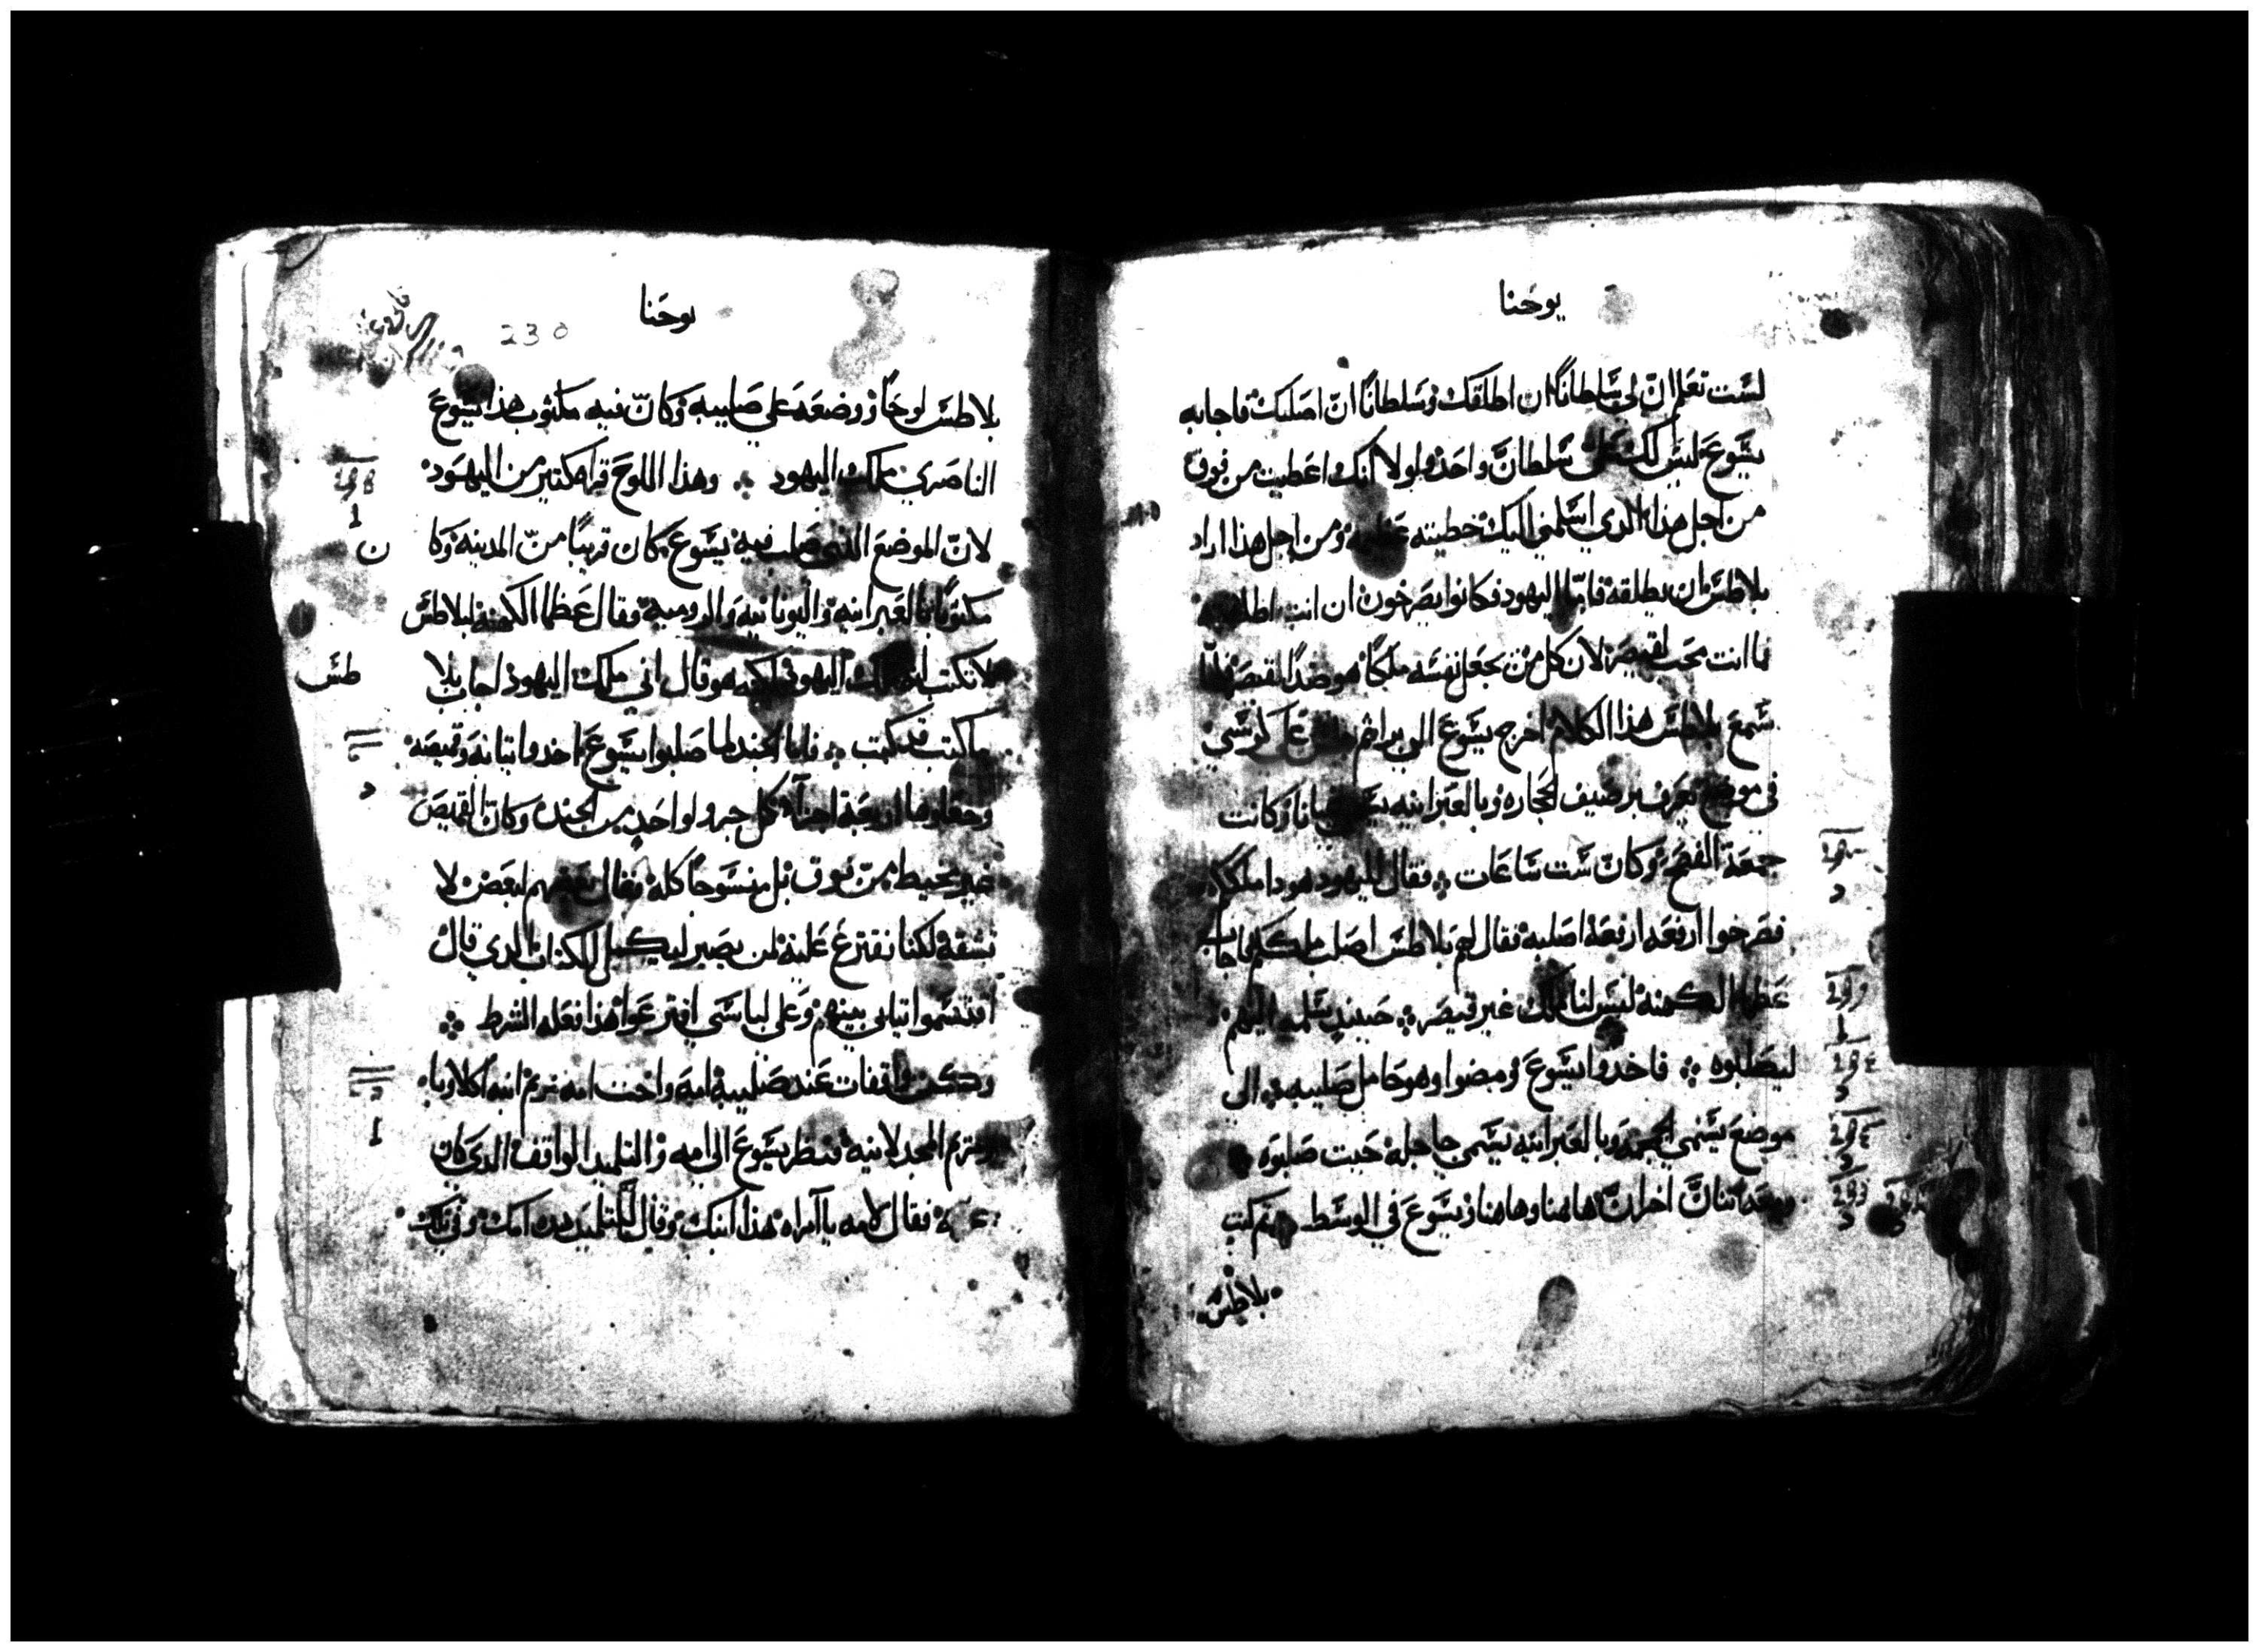 يوحنا
لست تعلم ان لي سلطانًا ان اطلقك وسلطانًا ان اصلبك فاجابه
يشوع ليس لك علي سلطان واحد لولا انك اعطيت من فوق
من اجل هذا الدي اسلمني اليك خطيته ومن اجل هذا اراد
بلاطس ان يطلقه فامّا اليهود فكانوا يصرخون ان انت
ما انت محب لقيصر لان كل من يجعل نفسه ملكًا هو ضدًا لقيصر فلما
سمع بلاطس هذا الكلام اخرج يسوع الى برا ثم على كرسي
في موضع يعرف برصيف الحجاره وبالعبرانيه وكانت
جمعة الفصح وكان ست ساعات فقال لليهود هودا ملككم
فصرخوا ارفعه ارفعه اصلبه فقال لهم بلاطس اصلب ملككم فاجاب
عظما الكهنه ليس لنا ملك غير قيصر حينيد سلمه اليهم
ليصلبوه فاخدوا يسوع ومضوا وهو حامل صليبه الى
موضع يسمى الجمجمه وبالعبرانيه يسمى جاجله حيت صلبوه
ومعه اتنان اخران هاهنا وهاهنا ويسوع في الوسط تم كتب
بلاطس
يوحنا
230
بلاطس لوحًا ووضعه على صليبه وكان فيه مكتوب هذا يسوع
الناصري ملك اليهود وهذا اللوح قراه كتير من اليهود
لان الموضع الذي صلب فيه يسوع كان قريبًا من المدينه وكا ن
مكتوبًا بالعبرانيه واليونانيه والروميه فقال عظما الكهنه لبلاطس
لا تكتب انه ملك اليهود لكنه هو قال اني ملك اليهود اجاب بلا طس
ما كتبت قد كتبت فاما الجند لما صلبوا يسوع اخدوا تيابه وقميصه
وجعلوها اربعة اجزآ كل جزو لواحد من الجند وكان القميص
غير مخيط من فوق بل منسوجًا كله فقال بعضهم لبعض لا
نشقه لكنا نقترع عليه لمن يصير ليكمل الكتاب الدي قال
اقتسموا تيابي بينهم وعلى لباسي اقترعوا هذا فعله الشرط
وكن واقفات عند صليبه امه واخت امه مريم ابنه اكلاوبا
ومريم المجدلانيه فنظر يسوع الى امه والتلميد الواقف الدي كان
فقال لامه يا امراه هذا ابنك وقال للتلميد هده امك وفي تلك